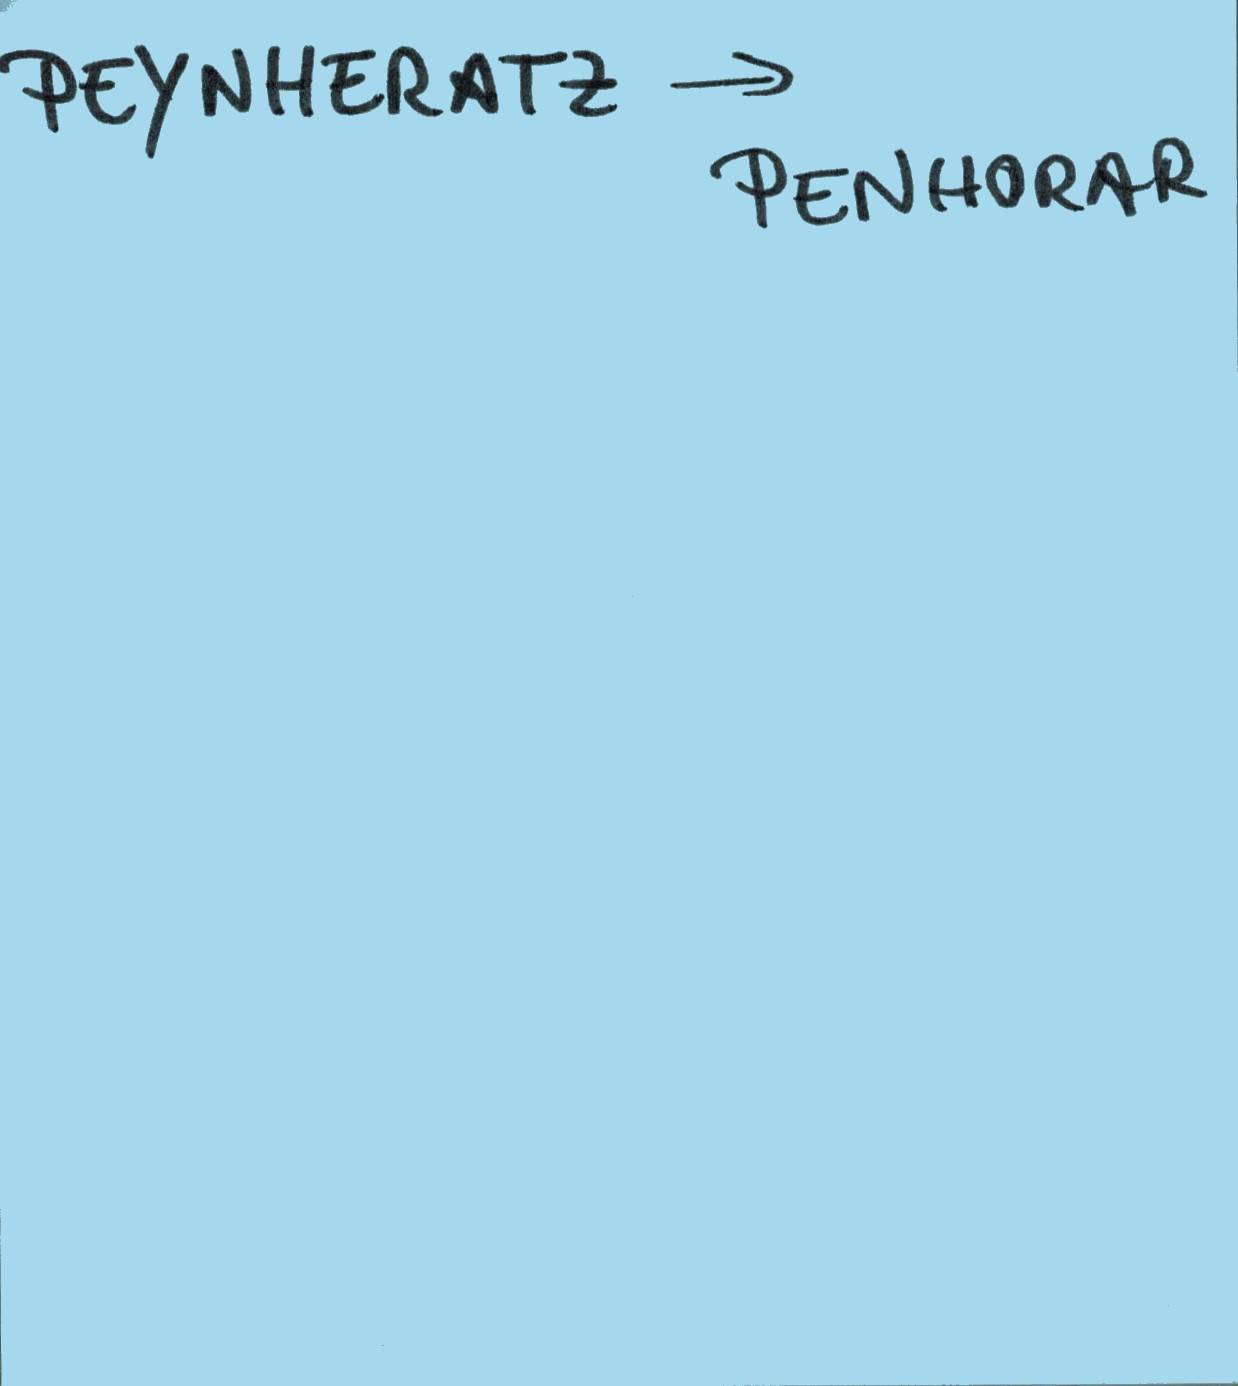 PEYNHERATZ →
PENHORAR